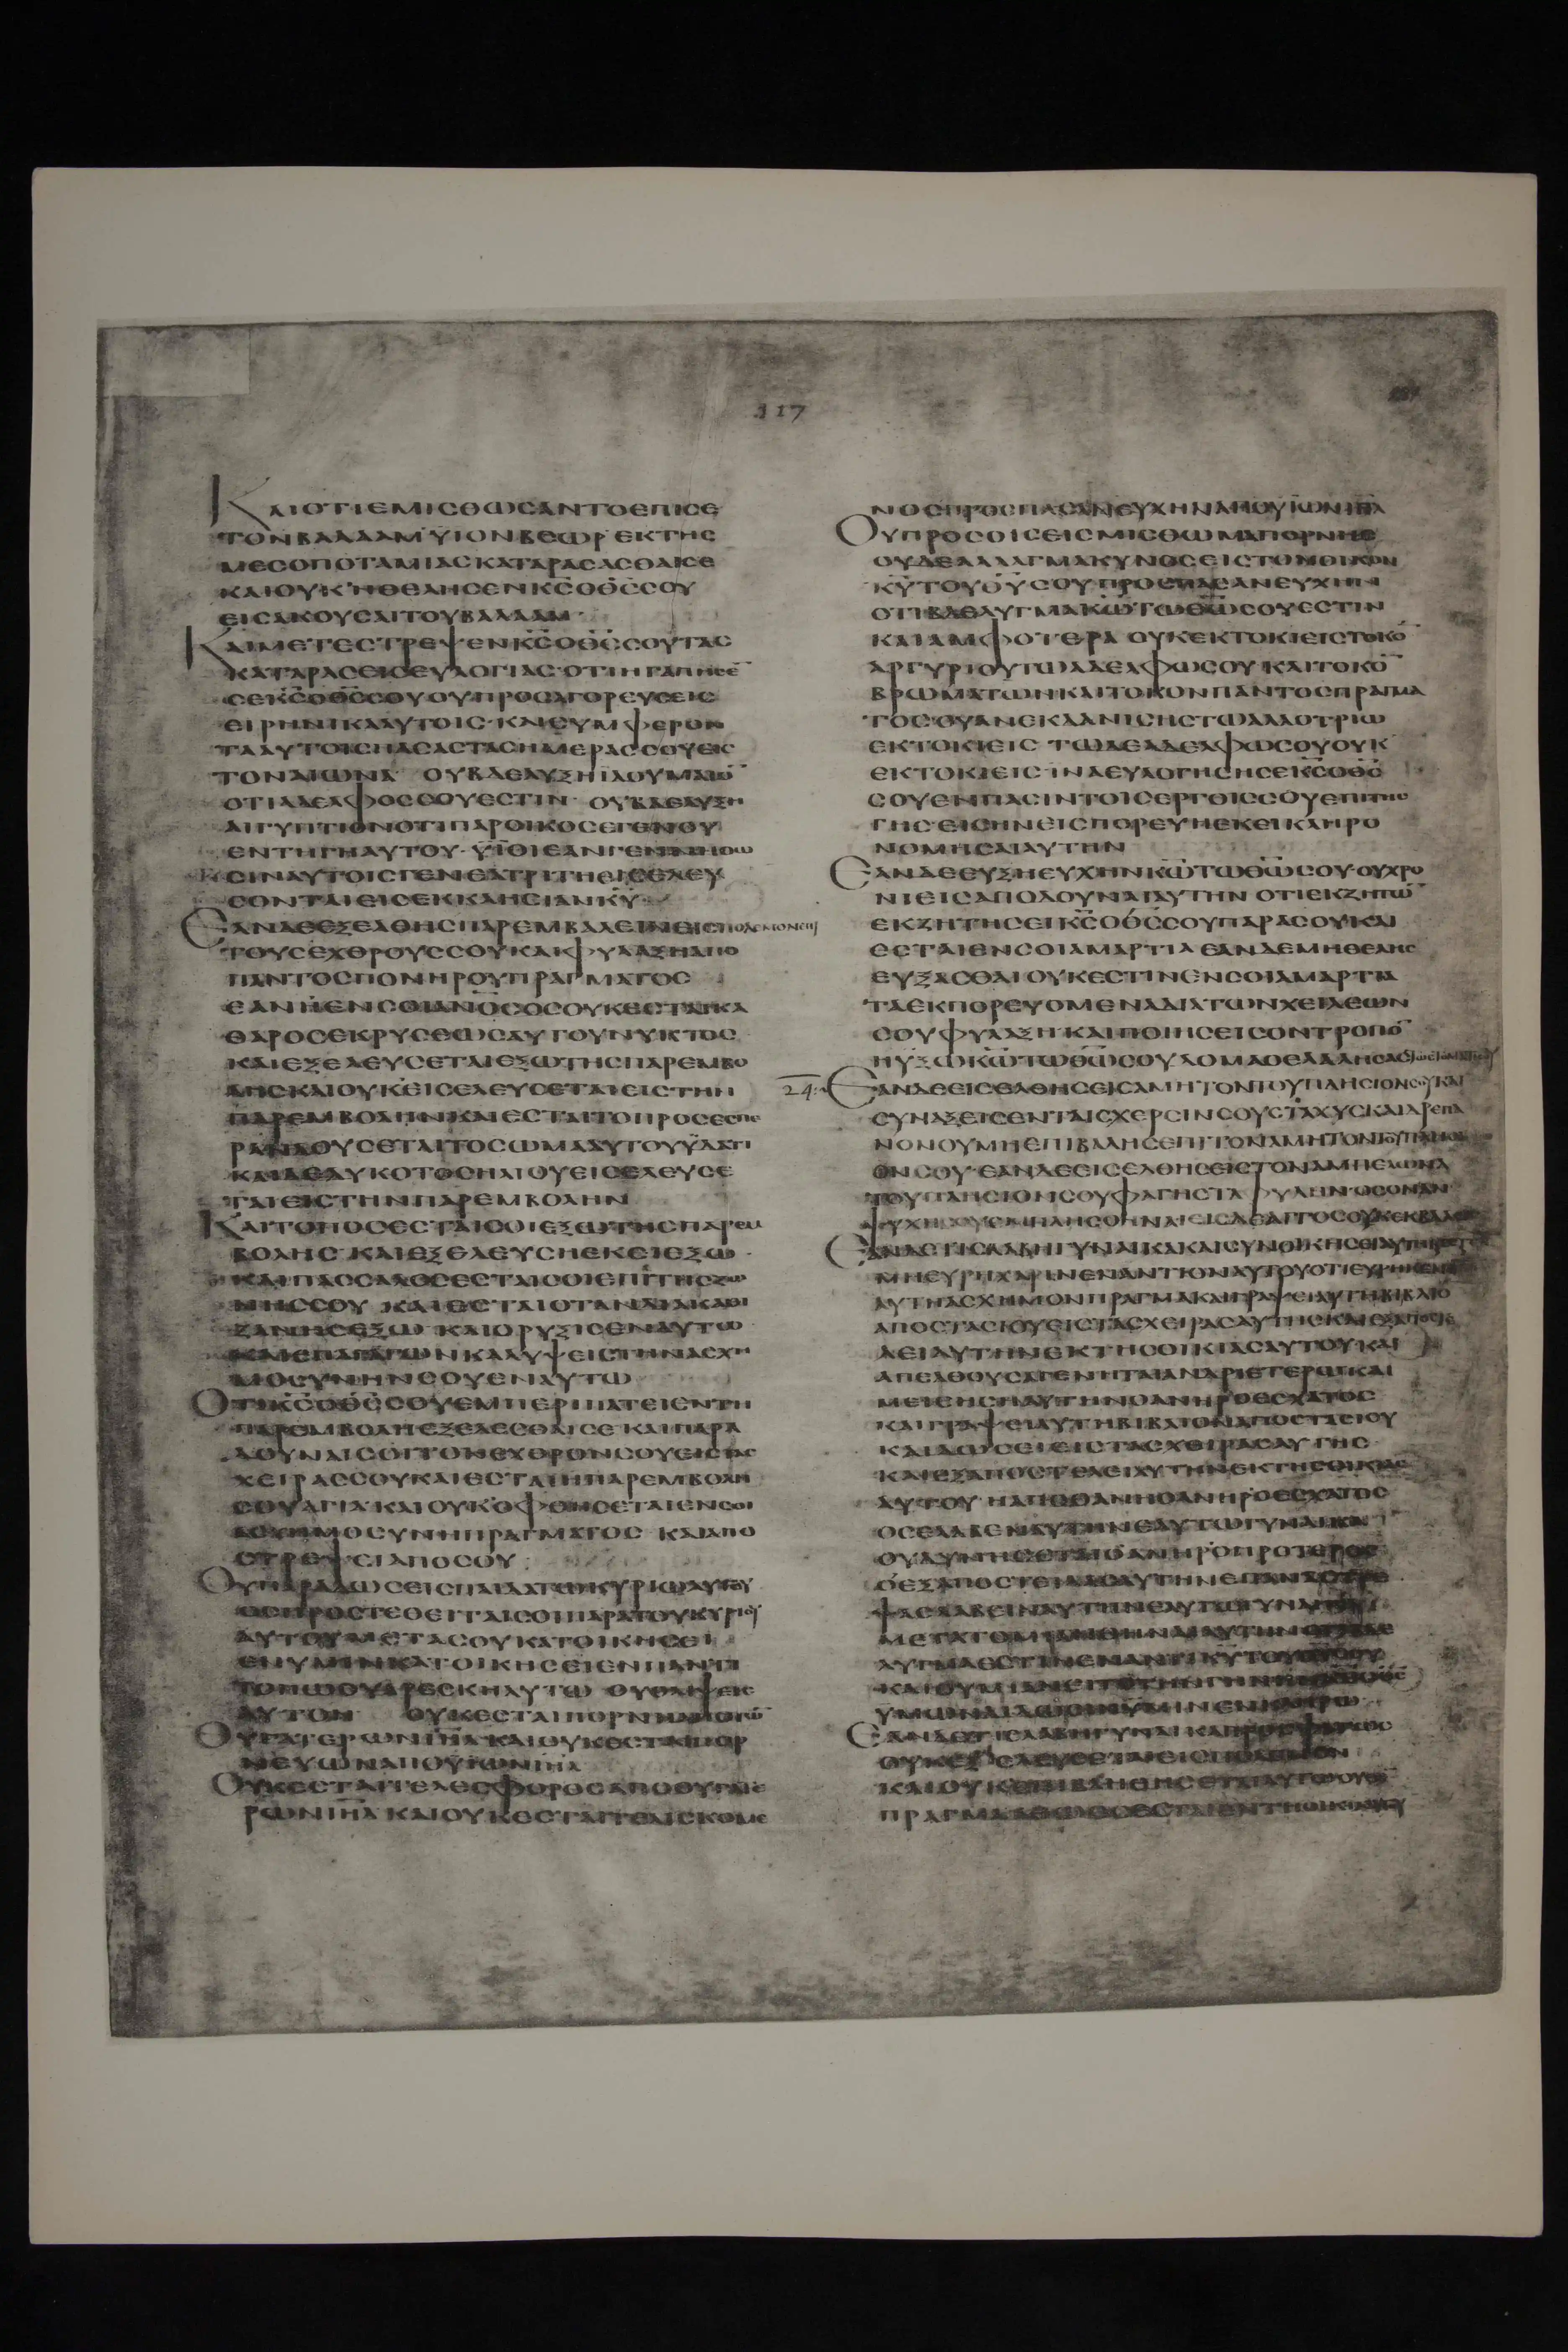 117
ΚΑΙΟΤΙΕΜΙΣΘΩΣΑΝΤΟΕΠΙΣΕ
ΤΟΝΒΑΛΑΑΜΥΙΟΝΒΕΩΡΕΚΤΗΣ
ΜΕΣΟΠΟΤΑΜΙΑΣΚΑΤΑΡΑΣΑΣΘΑΙΣΕ
ΚΑΙΟΥΚΗΘΕΛΗΣΕΝΚ̅Σ̅ΟΘ̅Σ̅ΣΟΥ
ΕΙΣΑΚΟΥΣΑΙΤΟΥΒΑΛΑΑΜ
ΚΑΙΜΕΤΕΣΤΡΕΨΕΝΚ̅Σ̅ΟΘ̅Σ̅ΣΟΥΤΑΣ
ΚΑΤΑΡΑΣΕΙΣΕΥΛΟΓΙΑΣ·ΟΤΙΗΓΑΠΗΣΕ̅
ΣΕΚ̅Σ̅ΟΘ̅Σ̅ΣΟΥΟΥΠΡΟΣΑΓΟΡΕΥΣΕΙΣ
ΕΙΡΗΝΙΚΑΑΥΤΟΙΣ·ΚΑΙΣΥΜΦΕΡΟΝ
ΤΑΑΥΤΟΙΣΠΑΣΑΣΤΑΣΗΜΕΡΑΣΣΟΥΕΙΣ
ΤΟΝΑΙΩΝΑ ΟΥΒΔΕΛΥΞΗΙΔΟΥΜΑΙΟ̅
ΟΤΙΑΔΕΛΦΟΣΣΟΥΕΣΤΙΝ ΟΥΒΔΕΛΥΞΗ
ΑΙΓΥΠΤΙΟΝΟΤΙΠΑΡΟΙΚΟΣΕΓΕΝΟΥ
ΕΝΤΗΓΗΑΥΤΟΥ·ΥΙΟΙΕΑΝΓΕΝΝΗΘΩ
ΣΙΝΑΥΤΟΙΣΓΕΝΕΑΤΡΙΤΗΕΙΣΕΛΕΥ
ΣΟΝΤΑΙΕΙΣΕΚΚΛΗΣΙΑΝΚ̅Υ̅
ΕΑΝΔΕΕΞΕΛΘΗΣΠΑΡΕΜΒΑΛΕΙΝΕΙΣΠΟΛΕΜΟΝΕΠΙ
ΤΟΥΣΕΧΘΡΟΥΣΣΟΥΚΑΙΦΥΛΑΞΗΑΠΟ
ΠΑΝΤΟΣΠΟΝΗΡΟΥΠΡΑΓΜΑΤΟΣ
ΕΑΝΗΕΝΣΟΙΑΝ̅Ο̅Σ̅ΟΣΟΥΚΕΣΤΑΙΚΑ
ΘΑΡΟΣΕΚΡΥΣΕΩΣΑΥΤΟΥΝΥΚΤΟΣ
ΚΑΙΕΞΕΛΕΥΣΕΤΑΙΕΞΩΤΗΣΠΑΡΕΜΒΟ
ΛΗΣΚΑΙΟΥΚΕΙΣΕΛΕΥΣΕΤΑΙΕΙΣΤΗΝ
ΠΑΡΕΜΒΟΛΗΝΚΑΙΕΣΤΑΙΤΟΠΡΟΣΕΣΠΕ
ΡΑΝΛΟΥΣΕΤΑΙΤΟΣΩΜΑΑΥΤΟΥΥΔΑΤΙ
ΚΑΙΔΕΔΥΚΟΤΟΣΗΛΙΟΥΕΙΣΕΛΕΥΣΕ
ΤΑΙΕΙΣΤΗΝΠΑΡΕΜΒΟΛΗΝ
ΚΑΙΤΟΠΟΣΕΣΤΑΙΣΟΙΕΞΩΤΗΣΠΑΡΕΜ
ΒΟΛΗΣ·ΚΑΙΕΞΕΛΕΥΣΗΕΚΕΙΕΞΩ
ΚΑΙΠΑΣΣΑΛΟΣΕΣΤΑΙΣΟΙΕΠΙΤΗΣΖΩ
ΝΗΣΣΟΥ ΚΑΙΕΣΤΑΙΟΤΑΝΔΙΑΚΑΘΙ
ΖΑΝΗΣΕΞΩ ΚΑΙΟΡΥΞΙΣΕΝΑΥΤΩ
ΚΑΙΕΠΑΓΑΓΩΝΚΑΛΥΨΕΙΣΤΗΝΑΣΧΗ
ΜΟΣΥΝΗΝΣΟΥΕΝΑΥΤΩ
ΟΤΙΚ̅Σ̅ΟΘ̅Σ̅ΣΟΥΕΜΠΕΡΙΠΑΤΕΙΕΝΤΗ
ΠΑΡΕΜΒΟΛΗΕΞΕΛΕΣΘΑΙΣΕ ΚΑΙΠΑΡΑ
ΔΟΥΝΑΙΣΟΙΤΟΝΕΧΘΡΟΝΣΟΥΕΙΣΤΑΣ
ΧΕΙΡΑΣΣΟΥΚΑΙΕΣΤΑΙΗΠΑΡΕΜΒΟΛΗ
ΣΟΥΑΓΙΑ·ΚΑΙΟΥΚΟΦΘΗΣΕΤΑΙΕΝΣΟΙ
ΑΣΧΗΜΟΣΥΝΗΠΡΑΓΜΑΤΟΣ ΚΑΙΑΠΟ
ΣΤΡΕΨΕΙΑΠΟΣΟΥ
ΟΥΠΑΡΑΔΩΣΕΙΣΠΑΙΔΑΤΩΚΥΡΙΩΑΥΤΟΥ
ΟΣΠΡΟΣΤΕΘΕΙΤΑΙΣΟΙΠΑΡΑΤΟΥΚΥΡΙΟΥ
ΑΥΤΟΥΜΕΤΑΣΟΥΚΑΤΟΙΚΗΣΕΙ
ΕΝΥΜΙΝΚΑΤΟΙΚΗΣΕΙΕΝΠΑΝΤΙ
ΤΟΠΩΟΥΑΡΕΣΚΗΑΥΤΩ ΟΥΘΛΙΨΕΙΣ
ΑΥΤΟΝ ΟΥΚΕΣΤΑΙΠΟΡΝΗΑΠΟΤΩ̅
ΘΥΓΑΤΕΡΩΝΙ̅Η̅Λ̅ΚΑΙΟΥΚΕΣΤΑΙΠΟΡ
ΝΕΥΩΝΑΠΟΥΙΩΝΙ̅Η̅Λ̅
ΟΥΚΕΣΤΑΙΤΕΛΕΣΦΟΡΟΣΑΠΟΘΥΓΑΤΕ
ΡΩΝΙ̅Η̅Λ̅ΚΑΙΟΥΚΕΣΤΑΙΤΕΛΙΣΚΟΜΕ
ΝΟΣΠΡΟΣΠΑΣΑΝΕΥΧΗΝΑΠΟΥΙΩΝΙ̅Η̅Λ̅
ΟΥΠΡΟΣΟΙΣΕΙΣΜΙΣΘΩΜΑΠΟΡΝΗΣ
ΟΥΔΕΑΛΛΑΓΜΑΚΥΝΟΣΕΙΣΤΟΝΟΙΚΟΝ
Κ̅Υ̅ΤΟΥΘ̅Υ̅ΣΟΥΠΡΟΣΠΑΣΑΝΕΥΧΗΝ
ΟΤΙΒΔΕΛΥΓΜΑΚ̅Ω̅ΤΩΘ̅Ω̅ΣΟΥΕΣΤΙΝ
ΚΑΙΑΜΦΟΤΕΡΑ ΟΥΚΕΚΤΟΚΙΕΙΣΤΟΚΟ̅
ΑΡΓΥΡΙΟΥΤΩΑΔΕΛΦΩΣΟΥ·ΚΑΙΤΟΚΟ̅
ΒΡΩΜΑΤΩΝΚΑΙΤΟΚΟΝΠΑΝΤΟΣΠΡΑΓΜΑ
ΤΟΣΟΥΑΝΕΚΔΑΝΙΣΗΣΤΩΑΛΛΟΤΡΙΩ
ΕΚΤΟΚΙΕΙΣ ΤΩΔΕΑΔΕΛΦΩΣΟΥΟΥΚ
ΕΚΤΟΚΙΕΙΣ·ΙΝΑΕΥΛΟΓΗΣΗΣΕΚ̅Σ̅ΟΘ̅Σ̅
ΣΟΥΕΝΠΑΣΙΝΤΟΙΣΕΡΓΟΙΣΣΟΥΕΠΙΤΗΣ
ΓΗΣ·ΕΙΣΗΝΕΙΣΠΟΡΕΥΗΕΚΕΙΚΛΗΡΟ
ΝΟΜΗΣΑΙΑΥΤΗΝ
ΕΑΝΔΕΕΥΞΗΕΥΧΗΝΚ̅Ω̅ΤΩΘ̅Ω̅ΣΟΥ·ΟΥΧΡΟ
ΝΙΕΙΣΑΠΟΔΟΥΝΑΙΑΥΤΗΝ ΟΤΙΕΚΖΗΤΩ̅
ΕΚΖΗΤΗΣΕΙΚ̅Σ̅ΟΘ̅Σ̅ΣΟΥΠΑΡΑΣΟΥΚΑΙ
ΕΣΤΑΙΕΝΣΟΙΑΜΑΡΤΙΑ ΕΑΝΔΕΜΗΘΕΛΗΣ
ΕΥΞΑΣΘΑΙΟΥΚΕΣΤΙΝΕΝΣΟΙΑΜΑΡΤΙΑ
ΤΑΕΚΠΟΡΕΥΟΜΕΝΑΔΙΑΤΩΝΧΕΙΛΕΩΝ
ΣΟΥΦΥΛΑΞΗ·ΚΑΙΠΟΙΗΣΕΙΣΟΝΤΡΟΠΟ̅
ΗΥΞΩΚ̅Ω̅ΤΩΘ̅Ω̅ΣΟΥΔΟΜΑΟΕΛΑΛΗΣΑΣ
24. ΕΑΝΔΕΕΙΣΕΛΘΗΣΕΙΣΑΜΗΤΟΝΤΟΥΠΛΗΣΙΟΝΣΟΥΚΑΙ
ΣΥΝΑΞΕΙΣΕΝΤΑΙΣΧΕΡΣΙΝΣΟΥΣΤΑΧΥΣΚΑΙΔΡΕΠΑ
ΝΟΝΟΥΜΗΕΠΙΒΑΛΗΣΕΠΙΤΟΝΑΜΗΤΟΝΤΟΥΠΛΗΣΙ
ΟΝΣΟΥ·ΕΑΝΔΕΕΙΣΕΛΘΗΣΕΙΣΤΟΝΑΜΠΕΛΩΝΑ
ΤΟΥΠΛΗΣΙΟΝΣΟΥΦΑΓΗΣΤΑΦΥΛΗΝ·ΟΣΟΝΑΝ
ΨΥΧΗΣΟΥΕΜΠΛΗΣΘΗΝΑΙΕΙΣΔΕΑΓΓΟΣΟΥΚΕΚΒΑΛΕΙΣ
ΕΑΝΔΕΤΙΣΛΑΒΗΓΥΝΑΙΚΑΚΑΙΣΥΝΟΙΚΗΣΗ
ΜΗΕΥΡΗΧΑΡΙΝΕΝΑΝΤΙΟΝΑΥΤΟΥΟΤΙΕΥΡΗΚΕΝ
ΑΥΤΗΑΣΧΗΜΟΝΠΡΑΓΜΑΚΑΙΓΡΑΨΕΙΑΥΤΗΒΙΒΛΙΟ
ΑΠΟΣΤΑΣΙΟΥΕΙΣΤΑΣΧΕΙΡΑΣΑΥΤΗΣΚΑΙΕΞΑΠΟΣΤΕ
ΛΕΙΑΥΤΗΝΕΚΤΗΣΟΙΚΙΑΣΑΥΤΟΥΚΑΙ
ΑΠΕΛΘΟΥΣΑΓΕΝΗΤΑΙΑΝΔΡΙΕΤΕΡΩΚΑΙ
ΜΕΙΣΗΣΗΑΥΤΗΝΟΑΝΗΡΟΕΣΧΑΤΟΣ
ΚΑΙΓΡΑΨΕΙΑΥΤΗΒΙΒΛΙΟΝΑΠΟΣΤΑΣΙΟΥ
ΚΑΙΔΩΣΕΙΕΙΣΤΑΣΧΕΙΡΑΣΑΥΤΗΣ
ΚΑΙΕΞΑΠΟΣΤΕΛΕΙΑΥΤΗΝΕΚΤΗΣΟΙΚΙΑΣ
ΑΥΤΟΥ ΗΑΠΟΘΑΝΗΟΑΝΗΡΟΕΣΧΑΤΟΣ
ΟΣΕΛΑΒΕΝΑΥΤΗΝΕΑΥΤΩΓΥΝΑΙΚΑ
ΟΥΔΥΝΗΣΕΤΑΙΟΑΝΗΡΟΠΡΟΤΕΡΟΣ
ΟΕΞΑΠΟΣΤΕΙΛΑΣΑΥΤΗΝΕΠΑΝΑΣΤΡΕ
ΨΑΣΛΑΒΕΙΝΑΥΤΗΝΕΑΥΤΩΓΥΝΑΙΚΑ
ΜΕΤΑΤΟΜΙΑΝΘΗΝΑΙΑΥΤΗΝΟΤΙΒΔΕ
ΛΥΓΜΑΕΣΤΙΝΕΝΑΝΤΙΚ̅Υ̅ΤΟΥ
ΚΑΙΟΥΜΙΑΝΕΙΤΕΤΗΝΓΗΝ
ΥΜΩΝΔΙΔΩΣΙΝΥΜΙΝΕΝΚΛΗΡΩ
ΕΑΝΔΕΤΙΣΛΑΒΗΓΥΝΑΙΚΑΠΡΟΣΦΑΤΩΣ
ΟΥΚΕΞΕΛΕΥΣΕΤΑΙΕΙΣΠΟΛΕΜΟΝ
ΚΑΙΟΥΚΕΠΙΒΛΗΘΗΣΕΤΑΙΑΥΤΩΟΥΔΕ̅
ΠΡΑΓΜΑΑΘΩΟΣΕΣΤΑΙΕΝΤΗΟΙΚΙΑ